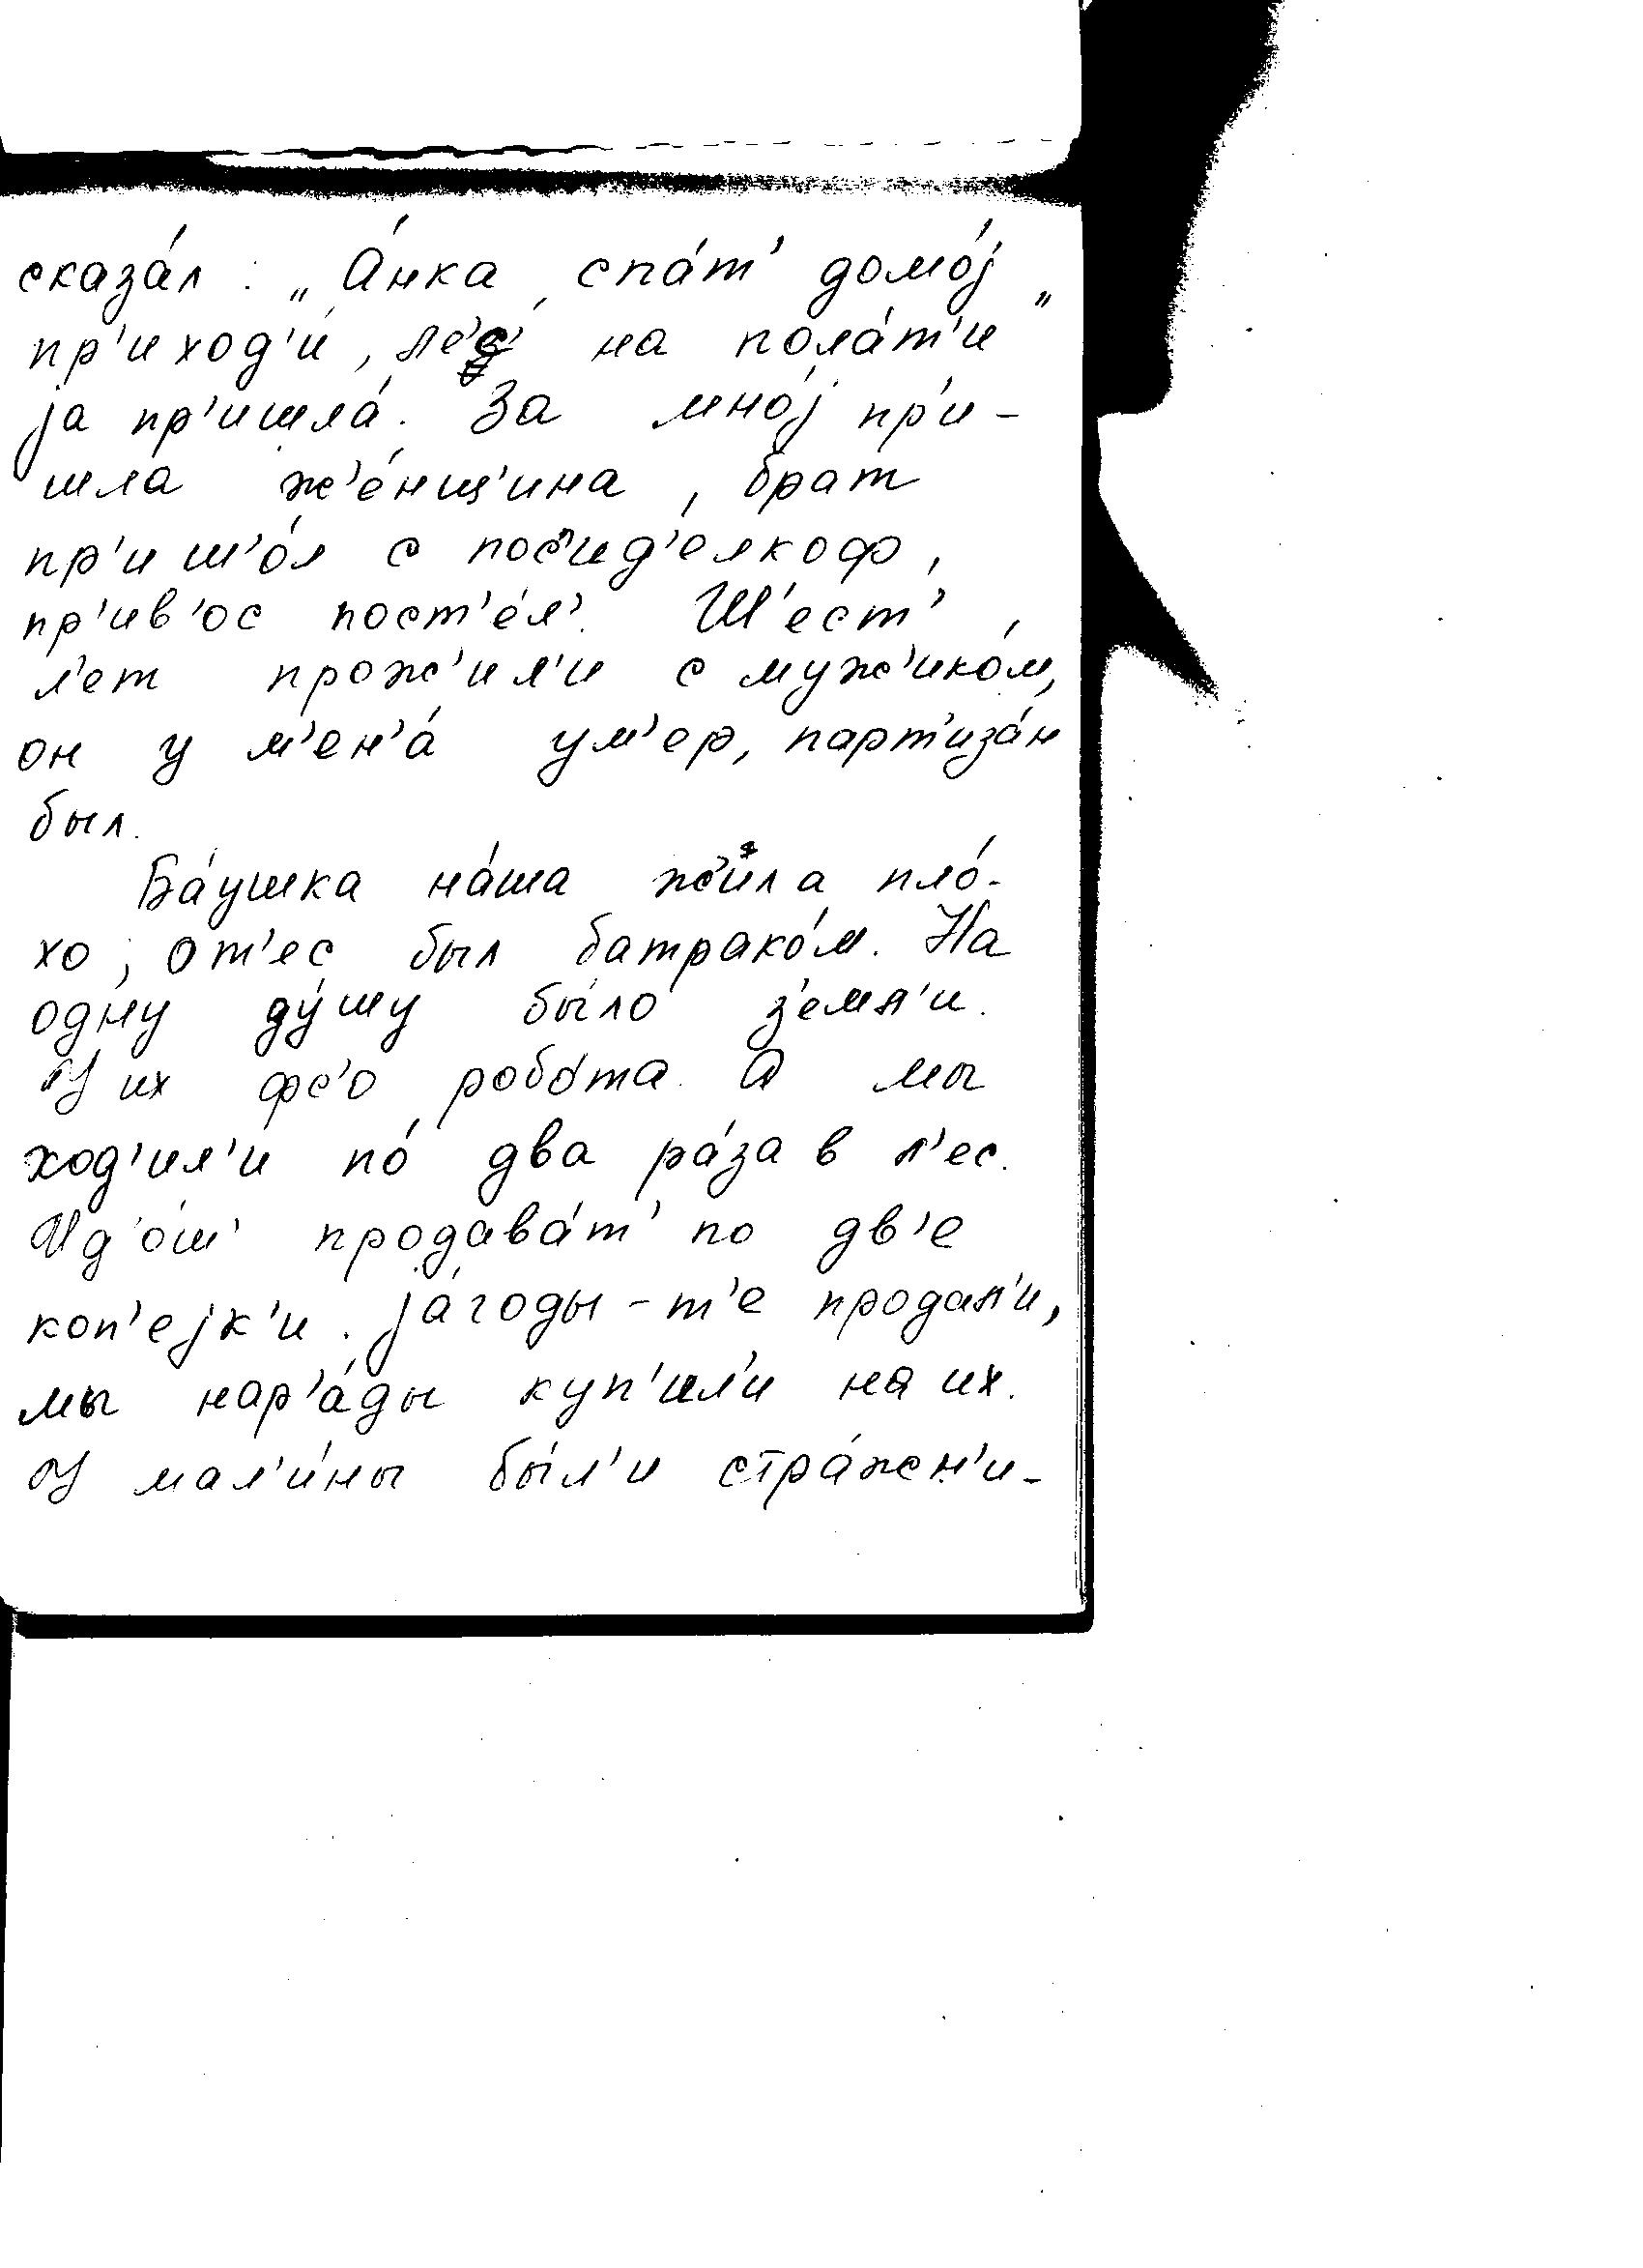 сказа́л : „А́нка, спа́т' домо́j
пр'иход'и́, на пола́т'и"
jа пр'ишла́. За мно́j пр'и-
шла ж'е́нщ'ина, брат
пр'иш'о́л с пос'ид'елкоф,
пр'ив'ос пост'е́л'. Ш'ест'
л'ет прож'ил'и с муж'ико́м,
он у м'ен'а́ ум'ер, парт'иза́н
был.
Ба́ушка на́ша ж'ила пло́-
хо, от'ес был батрако́м. На
одну ду́шу бы́ло з'емл'и.
У их фс'о робо́та. А мы
ход'ил'и по́ два ра́за в л'ес.
Ид'о́ш' продава́т' по дв'е
коп'еjк'и. jа́годы-т'е продал'и,
мы нар'а́ды куп'ил'и на их.
У мал'и́ны бы́л'и стра́жн'и-